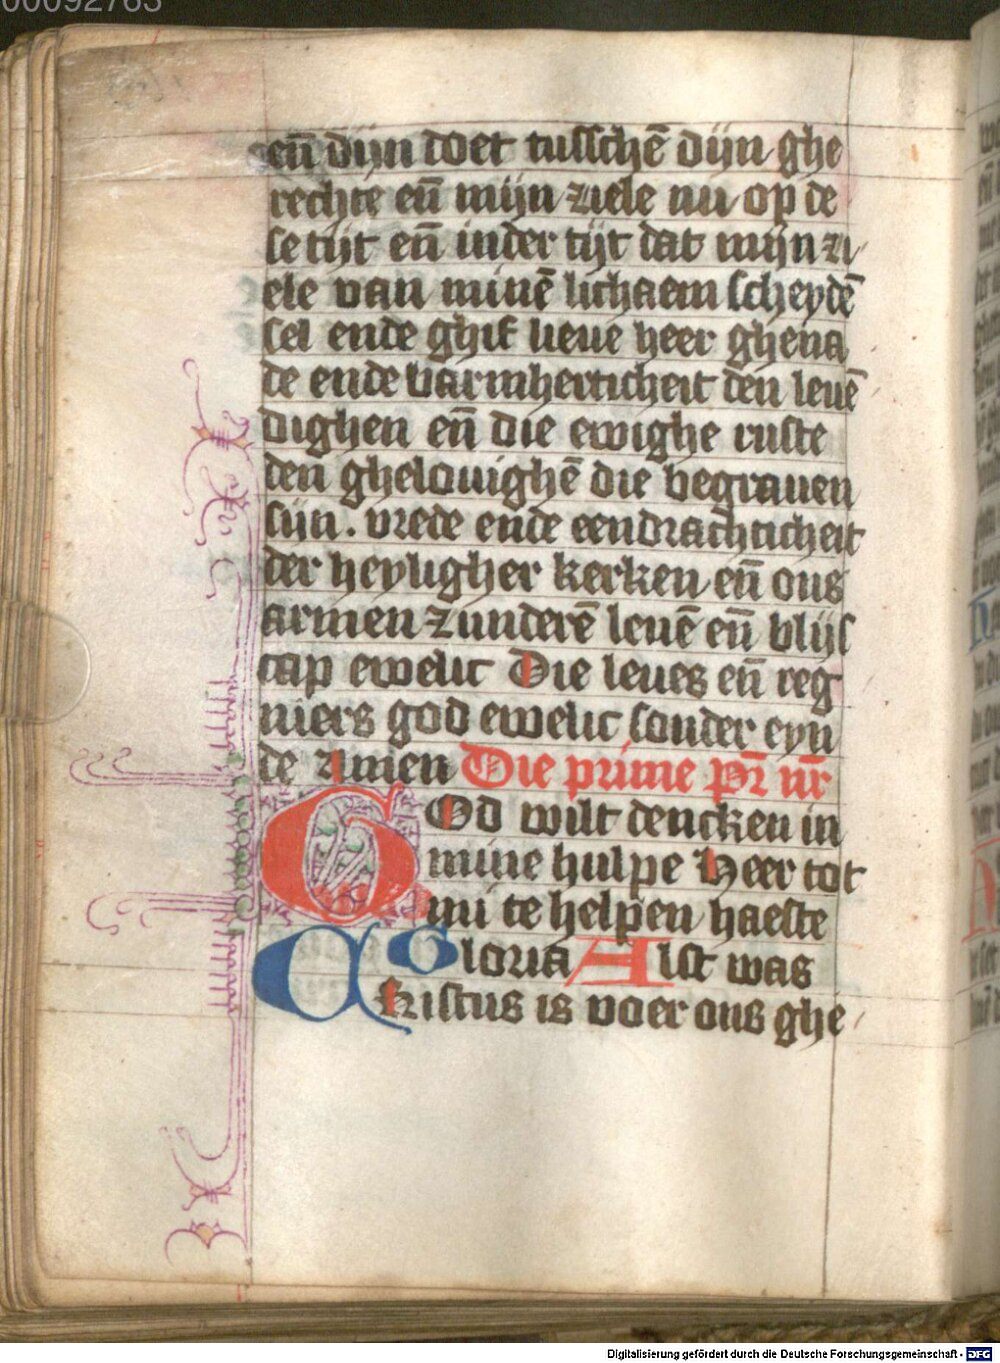 00092763
en̄ dijn doet tusschē dijn ghe
rechte en̄ mijn ziele nu op de
se tijt en̄ inder tijt dat mijn zi
ele van minē lichaem scheydē
sel ende ghif lieue heer ghena
de ende barmherticheit den leuē
dighen en̄ die ewighe ruste
den ghelouighē die begrauen
sijn. vrede ende eendrachticheit
der heyligher kerken en̄ ons
armen zunderē leuē en̄ blijs
cap ewelic Die leues en̄ reg
niers god ewelic sonder eyn
de Amen Die prime pr̄ nr̄
GOd wilt dencken in
mine hulpe Heer tot
mi te helpen haeste
Gloria Alst was
Cristus is voer ons ghe
Digitalisierung gefördert durch die Deutsche Forschungsgemeinschaft - DFG